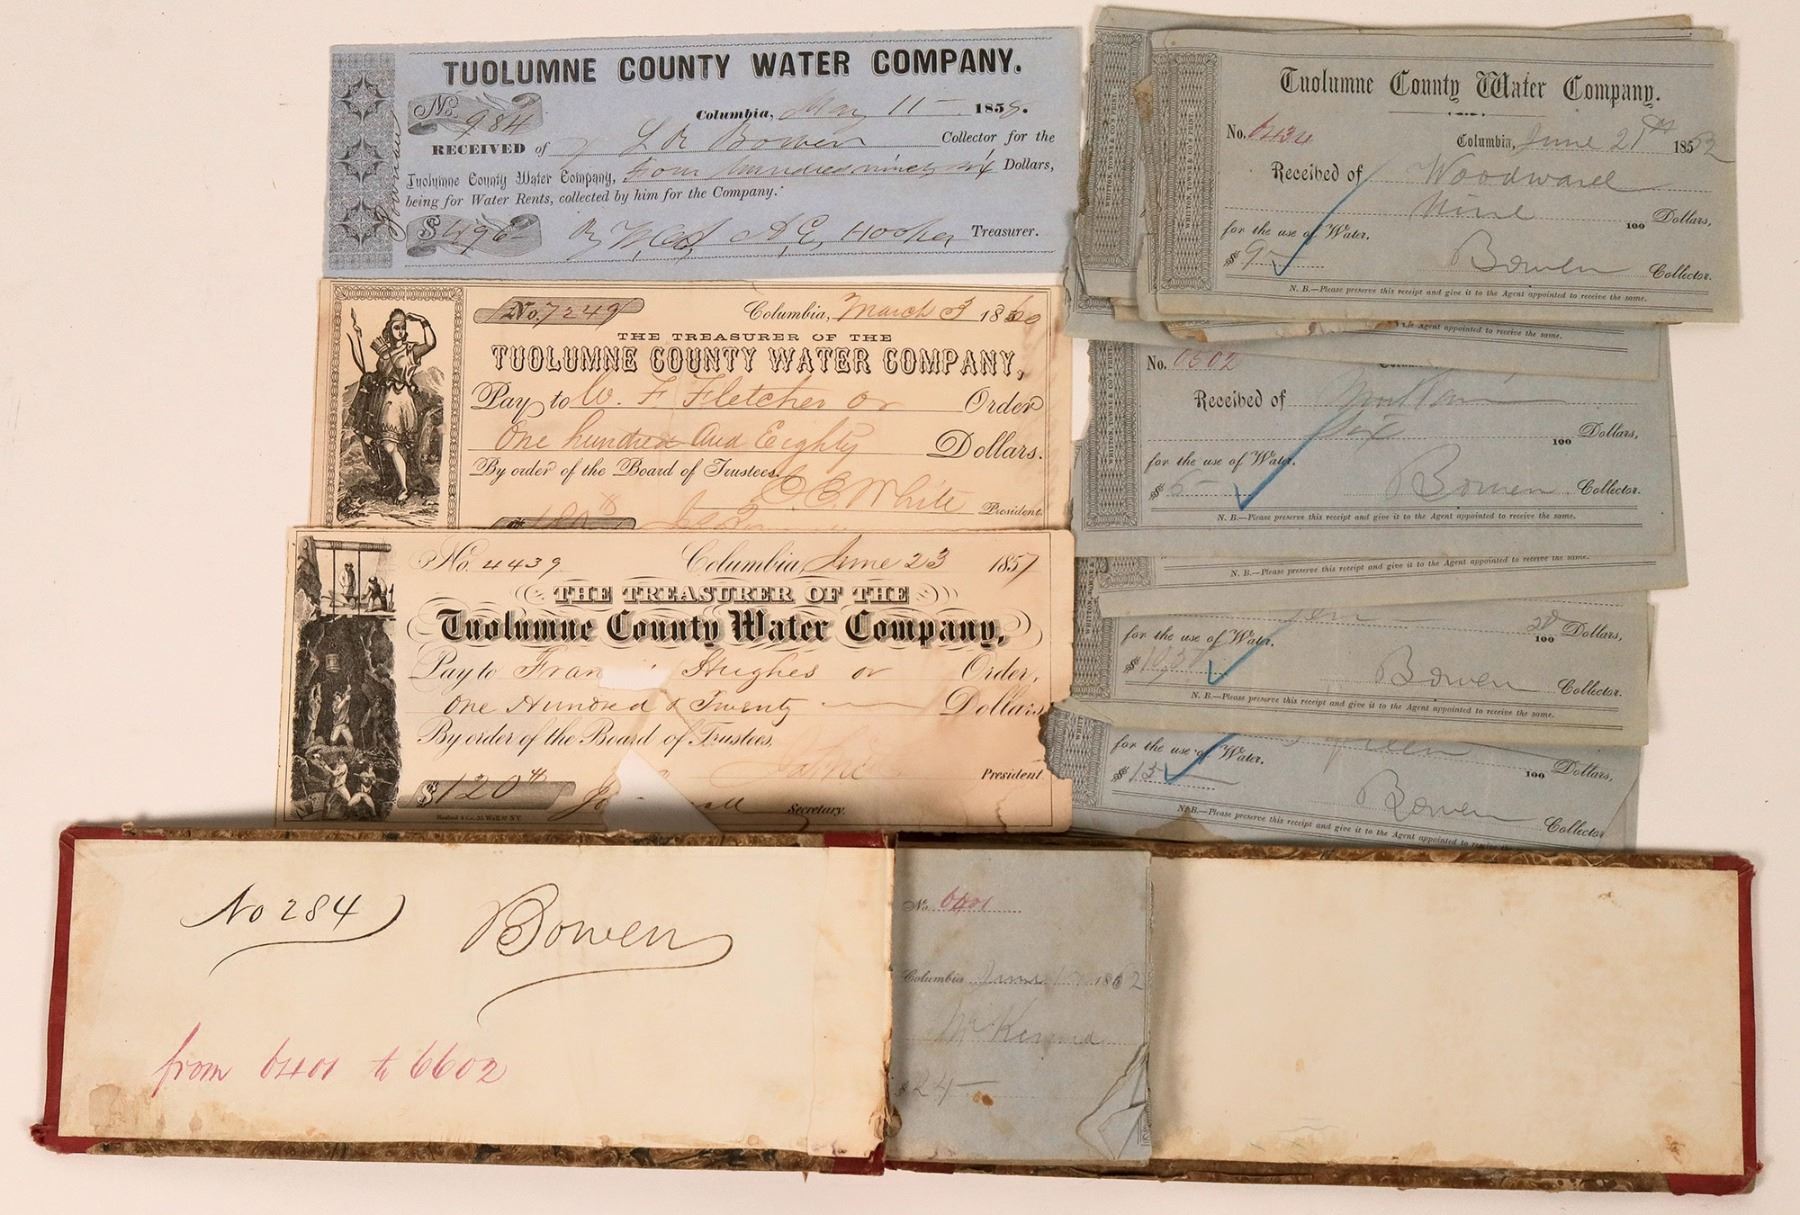 TUOLUMNE COUNTY WATER COMPANY.
No. 984
Columbia, May 11 — 1858.
RECEIVED of L R Bowen Collector for the
Tuolumne County Water Company, four hundred ninety six Dollars,
being for Water Rents, collected by him for the Company.
$496— By A. E. Hooker Treasurer.
No. 7249 Columbia, March 3 1860
THE TREASURER OF THE
TUOLUMNE COUNTY WATER COMPANY,
Pay to W. F. Fletcher or Order
One hundred and Eighty Dollars.
By order of the Board of Trustees.
White President.
No. 4439 Columbia, June 23 1857
THE TREASURER OF THE
Tuolumne County Water Company,
Pay to Fran Hughes or Order,
One Hundred & Twenty — Dollars
By order of the Board of Trustees.
President
$120 Secretary.
Tuolumne County Water Company.
No. 6434 Columbia, June 21st 1862
Received of Woodward
Nine 100 Dollars,
for the use of Water.
$9— Bowen Collector.
N. B.—Please preserve this receipt and give it to the Agent appointed to receive the same.
Agent appointed to receive the same.
No. 6502
Received of
Six 100 Dollars,
for the use of Water.
$6— Bowen Collector.
N. B.—Please preserve this receipt and give it to the Agent appointed to receive the same.
N. B.—Please preserve this receipt and give it to the Agent appointed to receive the same.
Ten — 100 Dollars,
for the use of Water.
$ Bowen Collector.
N. B.—Please preserve this receipt and give it to the Agent appointed to receive the same.
100 Dollars,
for the use of Water.
$15— Bowen Collector
N. B.—Please preserve this receipt and give it to the Agent appointed to receive the same.
No 284 Bowen
from 6401 to 6602
No. 6401
Columbia June 1862
$24—